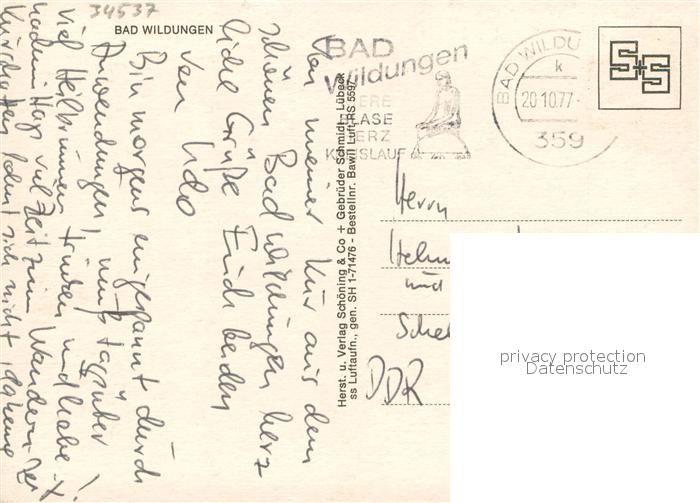 34537
BAD WILDUNGEN
Von meiner Kur aus dem
schönen Bad Wildungen herz
liche Grüße Euch beiden
von Udo
Bin morgens eingespannt durch
Anwendungen, muß tagsüber
viel Heilbrunnen trinken und habe
nachmittags viel Zeit zum Wandern. Der
sich nicht
Herst. u. Verlag Schöning & Co + Gebrüder Schmidt · Lübeck
ss Luftaufn., gen. SH 1-71476 - Bestellnr. Bawil Luft RS 5597
BAD
Wildungen
IERE
BLASE
HERZ
KREISLAUF
BAD WILDU
k
20.10.77-
359
S+S
Herrn
und
DDR
privacy protection
Datenschutz